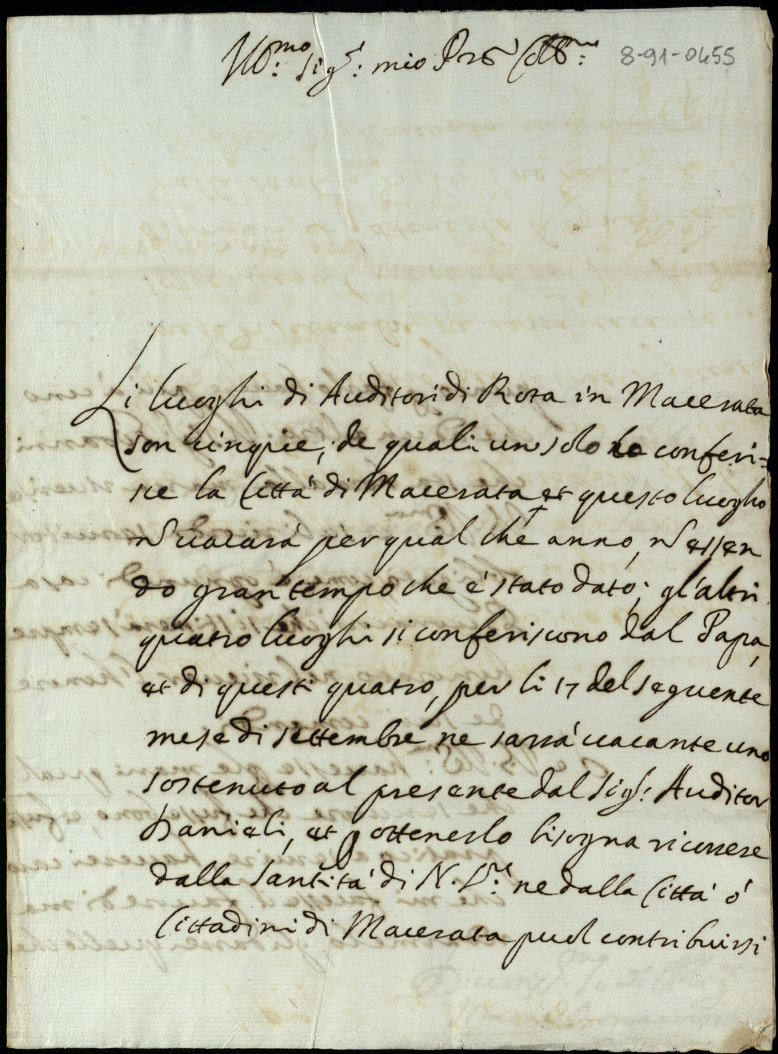 Ill.mo Sig.r mio P.ne Coll.mo 8-91-0455
Li luoghi di Auditori di Rota in Macerata
son cinque, de quali un solo lo conferi-
sce la Città di Macerata et questo luogho
nõ uacarà per qual che anno, nõ essen
do gran tempo che è stato dato; gl'altri
quatro luoghi si conferiscono dal Papa,
et di questi quatro, per li 17 del seguente
mese di settembre ne sarrà uacante uno
sostenuto al presente dal Sig.r Auditor
Danieli, et p ottenerlo bisogna ricorrere
dalla Santità di N. S.re ne dalla Città ò
Cittadini di Macerata puol contribuirsi